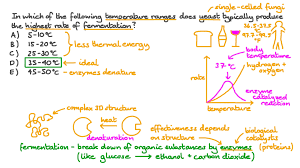 single-celled fungi
In which of the following temperature ranges does yeast typically produce
the highest rate of fermentation?
A) 5–10°C
B) 15–20°C
C) 25–30°C
D) 35–40°C
E) 45–50°C
less thermal energy
= ideal
= enzymes denature
body temperature
37°C
hydrogen in oxygen
rate
temperature
enzyme catalyzed reaction
complex 3D structure
heat
denaturation
effectiveness depends
on structure
biological catalysts
(proteins)
fermentation - break down of organic substances by enzymes
(like glucose → ethanol + carbon dioxide)